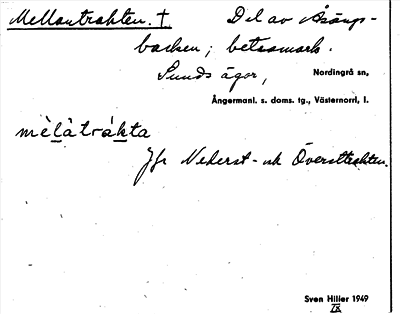 Mellantrakten. † Del av Åsäng-
backen; betesmark.
Sunds ägor, Nordingrå sn,
Ångermanl. s. doms. tg., Västernorrl. l.
mèlàtrákta
Jfr Nederst- och Översttrakten.
Sven Hiller 1949
IX